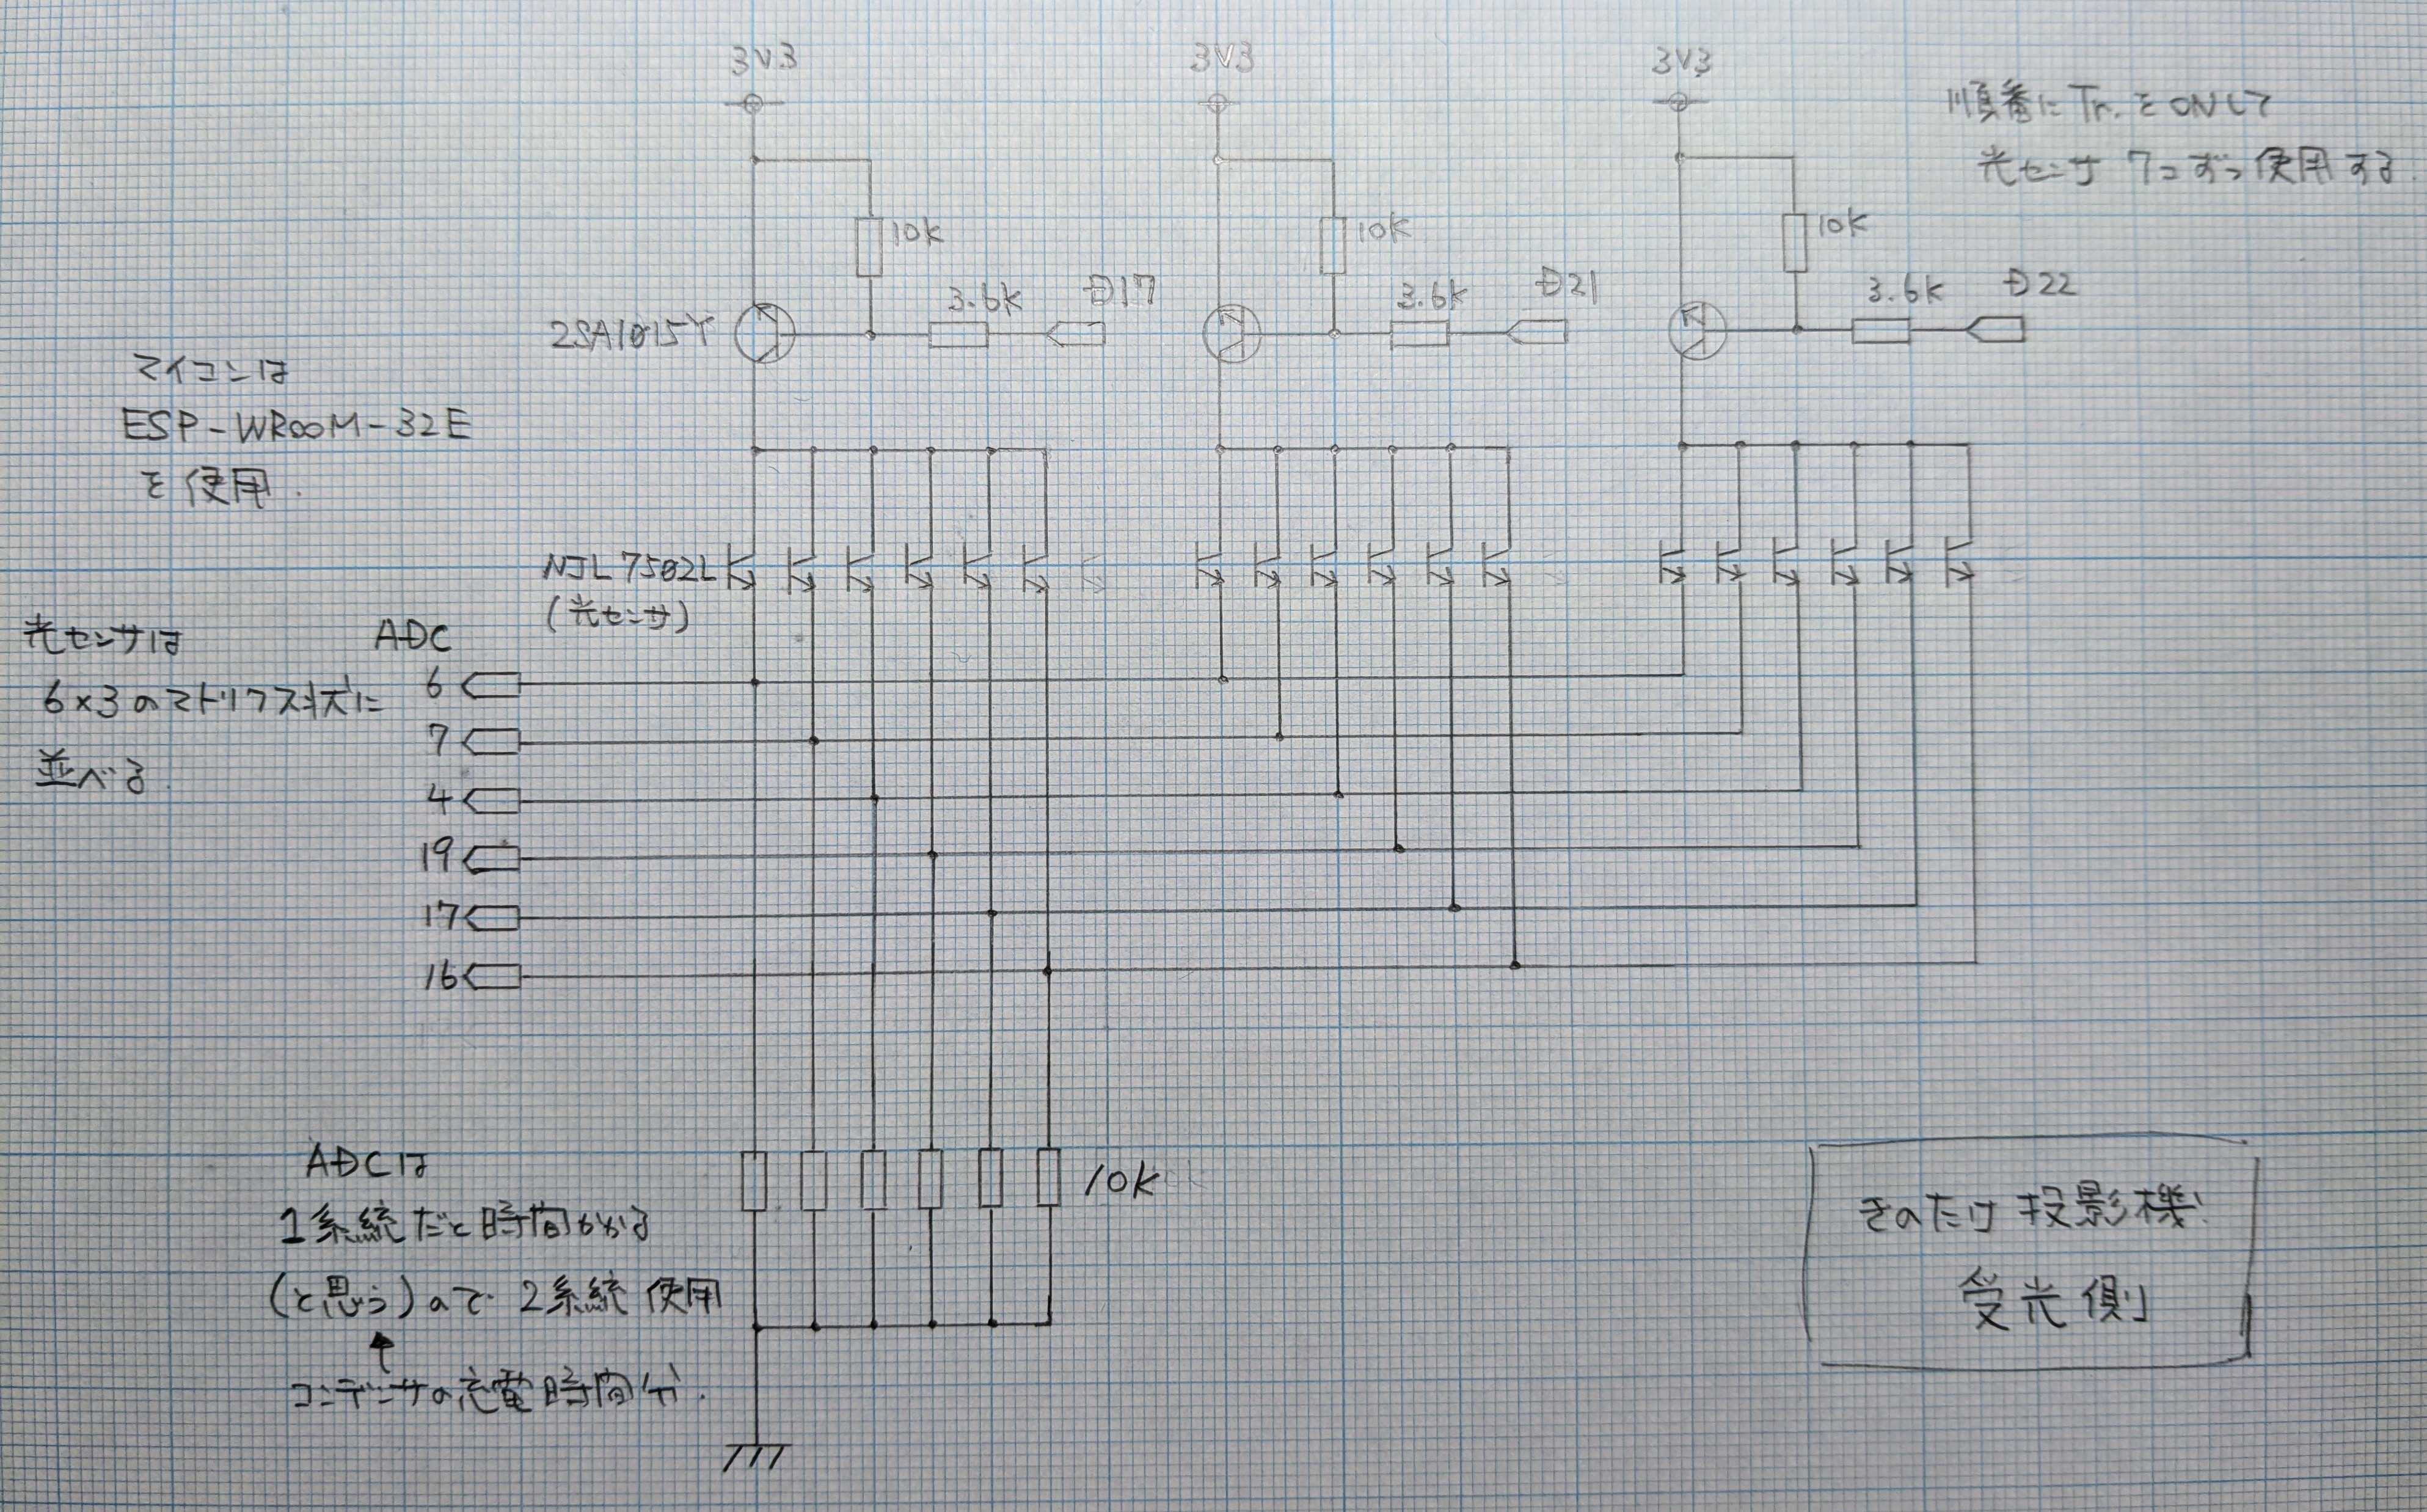 3V3
3V3
3V3
順番に Tr. をONして
光センサ 7コずつ使用する
10k
10k
10k
3.6k
D17
3.6k
D21
3.6k
D22
2SA1015Y
マイコンは
ESP-WROOM-32E
を使用.
NJL7502L
(光センサ)
光センサは
6×3のマトリクス状に
並べる
ADC
6
7
4
19
17
16
10k
ADCは
1系統だと時間かかる
(と思う)ので 2系統使用
↑
コンデンサの充電時間分.
きのたけ投影機
受光側